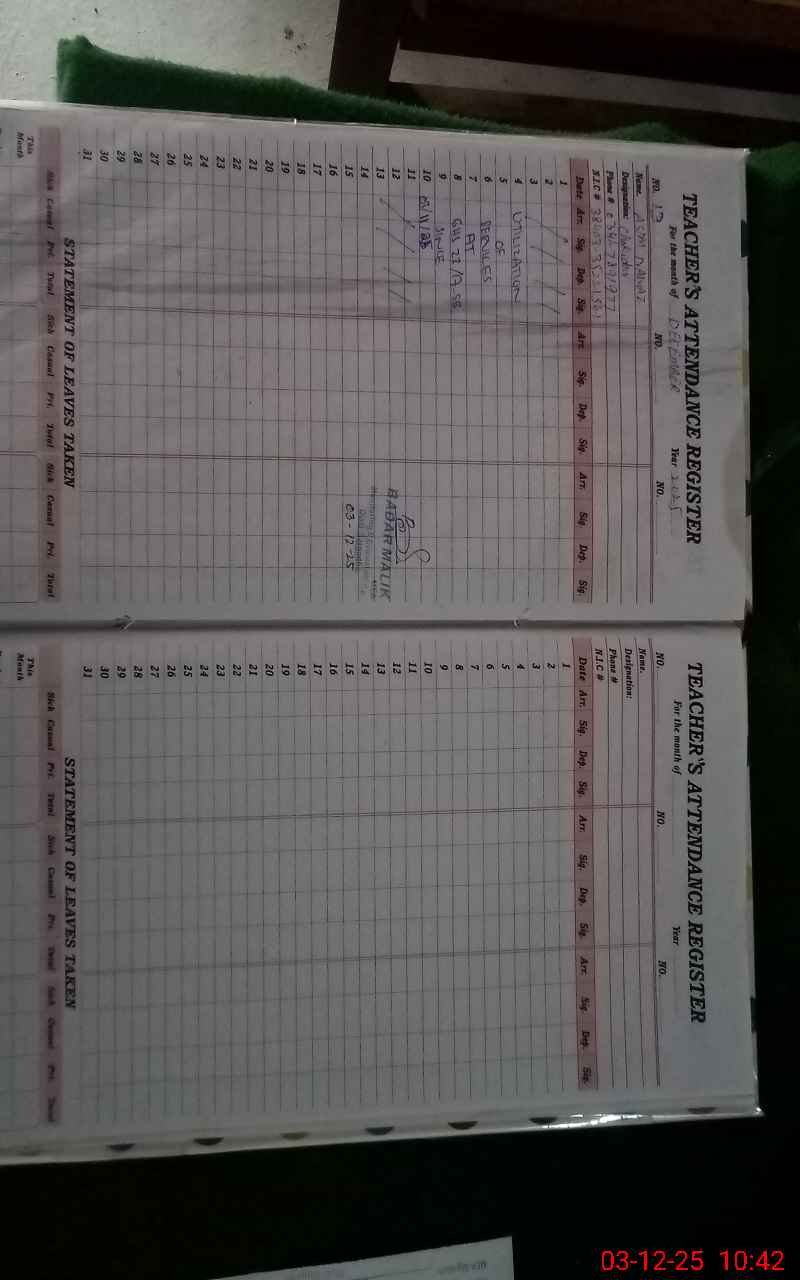 TEACHER'S ATTENDANCE REGISTER
For the month of DECEMBER Year 2025
NO. 13 NO. NO.
Name. ASIM NAWAZ
Designation:
Phone #
N.I.C #
Date Arr. Sig. Dep. Sig. Arr. Sig. Dep. Sig. Arr. Sig. Dep. Sig.
1
2
3
4 UTILIZATION
5 OF
6 SERVICES
7 AT
8 GHS
9 SINCE
10
11
12
BABAR MALIK
13
14
15 03-12-25
16
17
18
19
20
21
22
23
24
25
26
27
28
29
30
31
STATEMENT OF LEAVES TAKEN
Sick Casual Pri. Total Sick Casual Pri. Total Sick Casual Pri. Total
This Month
TEACHER'S ATTENDANCE REGISTER
For the month of Year
NO. NO. NO.
Name.
Designation:
Phone #
N.I.C #
Date Arr. Sig. Dep. Sig. Arr. Sig. Dep. Sig. Arr. Sig. Dep. Sig.
1
2
3
4
5
6
7
8
9
10
11
12
13
14
15
16
17
18
19
20
21
22
23
24
25
26
27
28
29
30
31
STATEMENT OF LEAVES TAKEN
Sick Casual Pri. Total Sick Casual Pri. Total Sick Casual Pri. Total
This Month
03-12-25 10:42